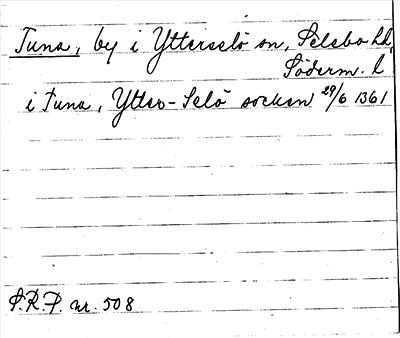 Tuna, by i Ytterselö sn, Selebo hd,
Söderm. l
i Tuna, Ytter-Selö socken 29/6 1361
S.R.P. nr. 508